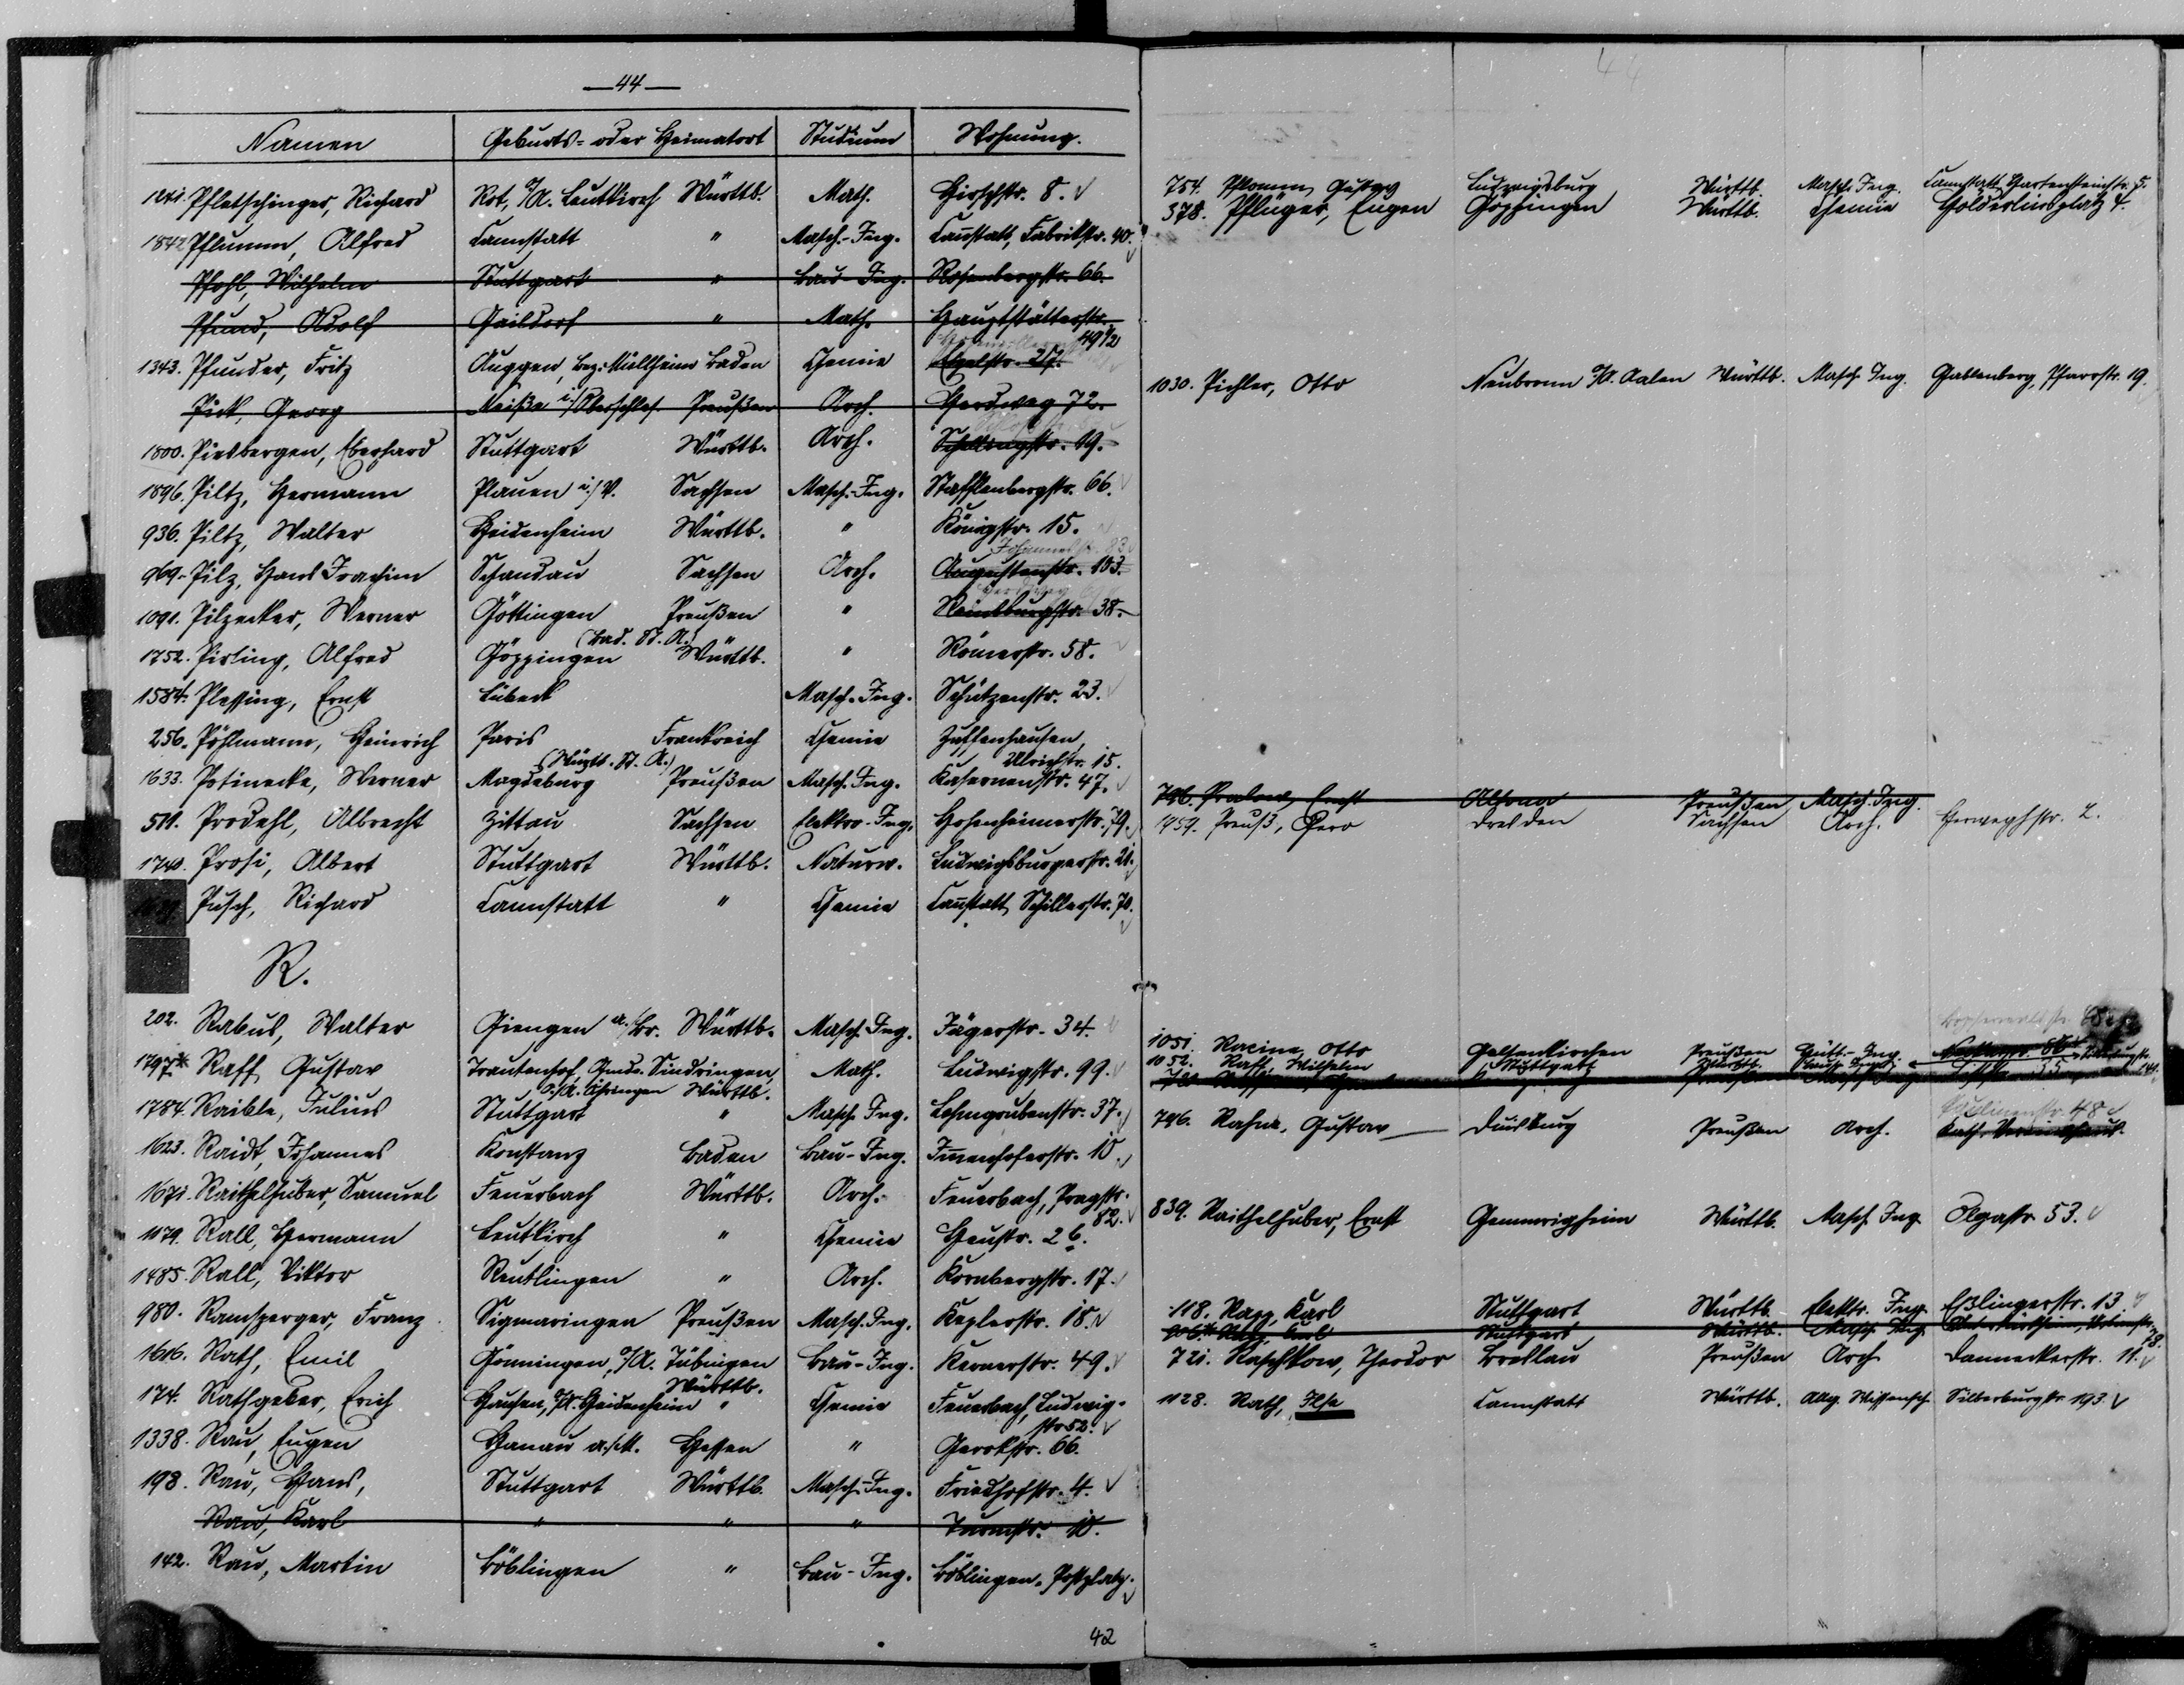 — 44 —
Namen Geburts- oder Heimatort Studium Wohnung.
1241. Pfletschinger, Richard Rot, O/A. Leutkirch Württb. Math. Hirschstr. 8.
1842 Pflumm, Alfred Cannstatt " Masch.-Ing. Canstatt, Fabrikstr. 40.
Pfohl, Wilhelm Stuttgart " Bau-Ing. Rosenbergstr. 66.
Pfund, Adolf Gaildorf " Math. Hauptstätterstr.
49 1/2
1343. Pfunder, Fritz Auggen, Bez. Müllheim Baden Chemie
Pick, Georg Neiße i/Oberschles. Preußen Arch. Herdweg 72.
1800. Piesbergen, Eberhard Stuttgart Württb. Arch. Schellingstr. 19.
1896. Piltz, Hermann Plauen i./V. Sachsen Masch.-Ing. Stafflenbergstr. 66.
936. Piltz, Walter Heidenheim Württb. " Königstr. 15.
Johannesstr. 93
969. Pilz, Hans Joachim Schandau Sachsen Arch. Augustenstr. 103.
1091. Pilzecker, Werner Göttingen Preußen " Reinsburgstr. 38.
(bad. St. A.)
1752. Pirling, Alfred Göppingen Württb. " Römerstr. 58.
1584. Plessing, Ernst Lübeck Masch.-Ing. Schützenstr. 23.
256. Pöhlmann, Heinrich Paris Frankreich Chemie Zuffenhausen,
(Württ. St. A.) Ulrichstr. 15.
1633. Potinecke, Werner Magdeburg Preußen Masch.-Ing. Kasernenstr. 47.
511. Prodehl, Albrecht Zittau Sachsen Elektro-Ing. Hohenheimerstr. 79.
1740. Prosi, Albert Stuttgart Württb. Naturw. Ludwigsburgerstr. 21.
Pusch, Richard Cannstatt " Chemie Canstatt Schillerstr. 70.
R.
202. Rabus, Walter Giengen a./Br. Württb. Masch. Ing. Jägerstr. 34.
1797* Raff, Gustav Trautenhof, Gmde. Sindringen, Math. Ludwigstr. 99.
O./A. Öhringen Württb.
1784. Raible, Julius Stuttgart " Masch. Ing. Lehmgrubenstr. 37.
1623. Raidt, Johannes Konstanz Baden Bau-Ing. Imenhoferstr. 10.
1671. Raithelhuber, Samuel Feuerbach Württb. Arch. Feuerbach, Pragstr.
82.
1179. Rall, Hermann Leutkirch " Chemie Heustr. 26.
1485. Rall, Viktor Reutlingen " Arch. Kornbergstr. 17.
980. Ramsperger, Franz Sigmaringen Preußen Masch. Ing. Keplerstr. 18.
1616. Rath, Emil Gönningen, O/A. Tübingen Bau-Ing. Kernerstr. 49.
Württb.
174. Rathgeber, Erich Hausen, O/A. Heidenheim " Chemie Feuerbach, Ludwig-
str 52.
1338. Rau, Eugen Hanau a./M. Hessen " Gerokstr. 66.
198. Rau, Hans, Stuttgart Württb. Masch-Ing. Friedhofstr. 4.
Rau, Karl " " " Turmstr. 10.
142. Rau, Martin Böblingen " Bau-Ing. Böblingen, Postplatz.
42
44
754. Pflomm, Gustav Ludwigsburg Württb. Masch. Ing. Cannstatt, Gartensteinstr. 5.
378. Pflüger, Eugen Göppingen Württb. Chemie Hölderlinplatz 4.
1030. Pichler, Otto Neubronn O/A. Aalen Württb. Masch. Ing. Gablenberg, Pfarrstr. 19.
796. Pralow, Ernst Altona Preußen Masch. Ing.
1959. Preuß, Gero Dresden Sachsen Arch. Herweghstr. 2.
1051. Racine, Otto Gelsenkirchen Preußen Hütt.-Ing.
1052. Raff, Wilhelm Stuttgart Württb.
796. Rahm, Gustav Duisburg Preußen Arch. Kath. Vereinshaus.
Paulinenstr. 48
839. Raithelhuber, Ernst Gemmrigheim Württb. Masch. Ing. Olgastr. 53.
118. Rapp, Karl Stuttgart Württb. Elektr. Ing. Eßlingerstr. 13.
Rapp, Karl Stuttgart Württb. Masch. Ing. Untertürkheim,
721. Raschkow, Theodor Breslau Preußen Arch Danneckerstr. 11.
1128. Rath, Ilse Cannstatt Württb. Allg. Wissensch. Silberburgstr. 193.